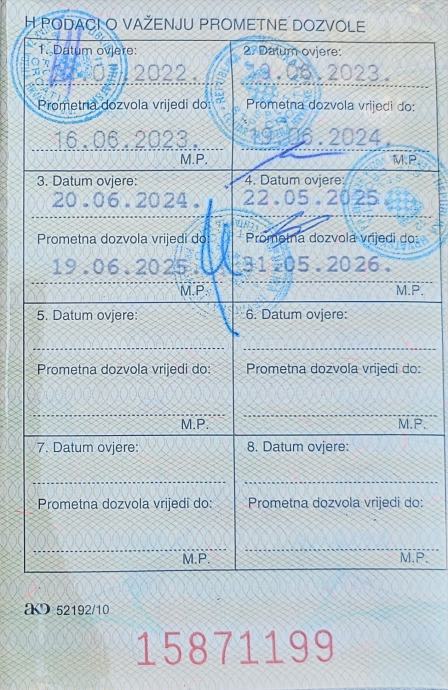 H PODACI O VAŽENJU PROMETNE DOZVOLE
1. Datum ovjere:
2022.
Prometna dozvola vrijedi do:
16.06.2023.
M.P.
2. Datum ovjere:
.06.2023.
Prometna dozvola vrijedi do:
19.06.2024.
M.P.
3. Datum ovjere:
20.06.2024.
Prometna dozvola vrijedi do:
19.06.2025.
M.P.
4. Datum ovjere:
22.05.2025.
Prometna dozvola vrijedi do:
31.05.2026.
M.P.
5. Datum ovjere:
Prometna dozvola vrijedi do:
M.P.
6. Datum ovjere:
Prometna dozvola vrijedi do:
M.P.
7. Datum ovjere:
Prometna dozvola vrijedi do:
M.P.
8. Datum ovjere:
Prometna dozvola vrijedi do:
M.P.
akd 52192/10
15871199